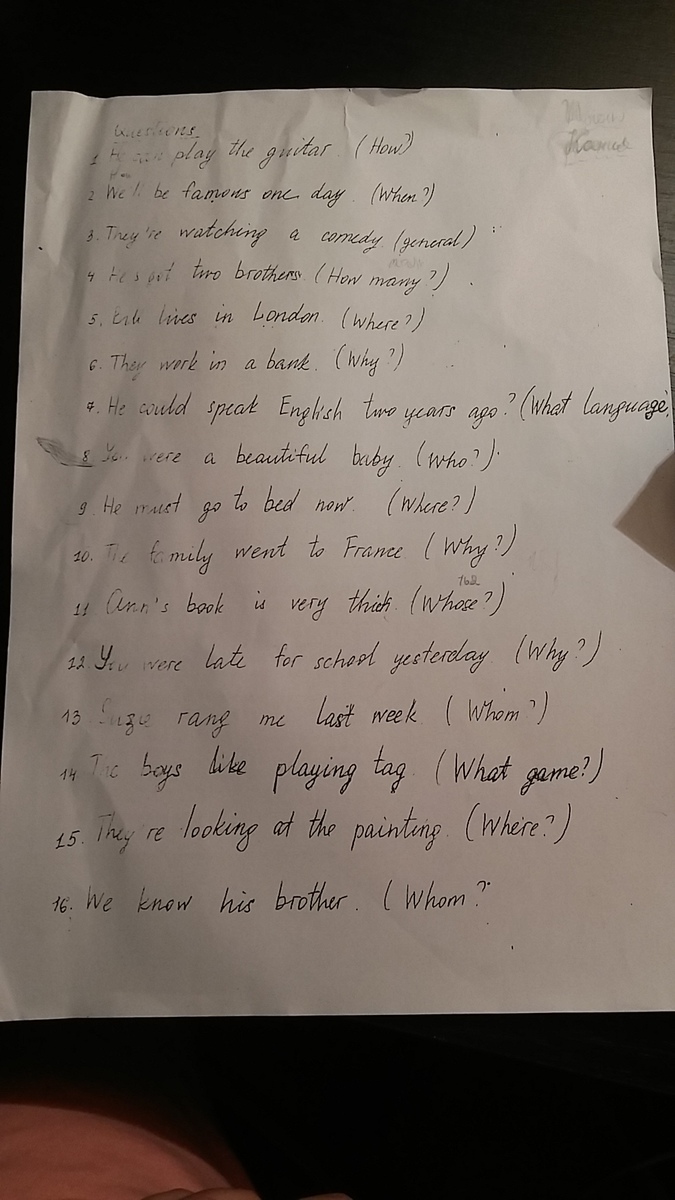 Questions
1 He can play the guitar. (How?)
2 We'll be famous one day. (When?)
3. They're watching a comedy (general)
4 He's got two brothers. (How many?)
5. lives in London. (Where?)
6. They work in a bank. (Why?)
7. He could speak English two years ago? (What language,
8. You were a beautiful baby. (Who?)
9. He must go to bed now. (Where?)
10. The family went to France (Why?)
11 Ann's book is very thick. (Whose?)
12. You were late for school yesterday. (Why?)
13 Suzie rang me last week. (Whom?)
14 The boys like playing tag. (What game?)
15. They're looking at the painting. (Where?)
16. We know his brother. (Whom?